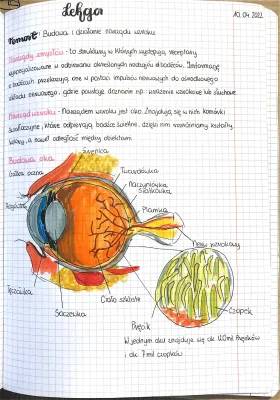 Lekcja
10.04.2022
Temat: Budowa i działanie narządu wzroku
Narządy zmysłów - to struktury w których występują receptory
wyspecjalizowane w odbieraniu określonych rodzajów bodźców. Informacje
o bodźcach przekazują one w postaci impulsów nerwowych do ośrodkowego
układu nerwowego, gdzie powstaje doznanie np: wrażenie wzrokowe lub słuchowe.
Narząd wzroku - Narządem wzroku jest oko. Znajdują się w nich komórki
światłoczułe, które odbierają bodźce świetlne, dzięki nim rozróżniamy kształty,
kolory, a nawet odległość między obiektami.
Budowa oka
Tęczówka
Twardówka
Naczyniówka
Siatkówka
Plamka
Nerw wzrokowy
Soczewka
Ciało szkliste
Pręcik
Czopek
W jednym oku znajduje się ok. 120ml pręcików
i ok 7ml czopków